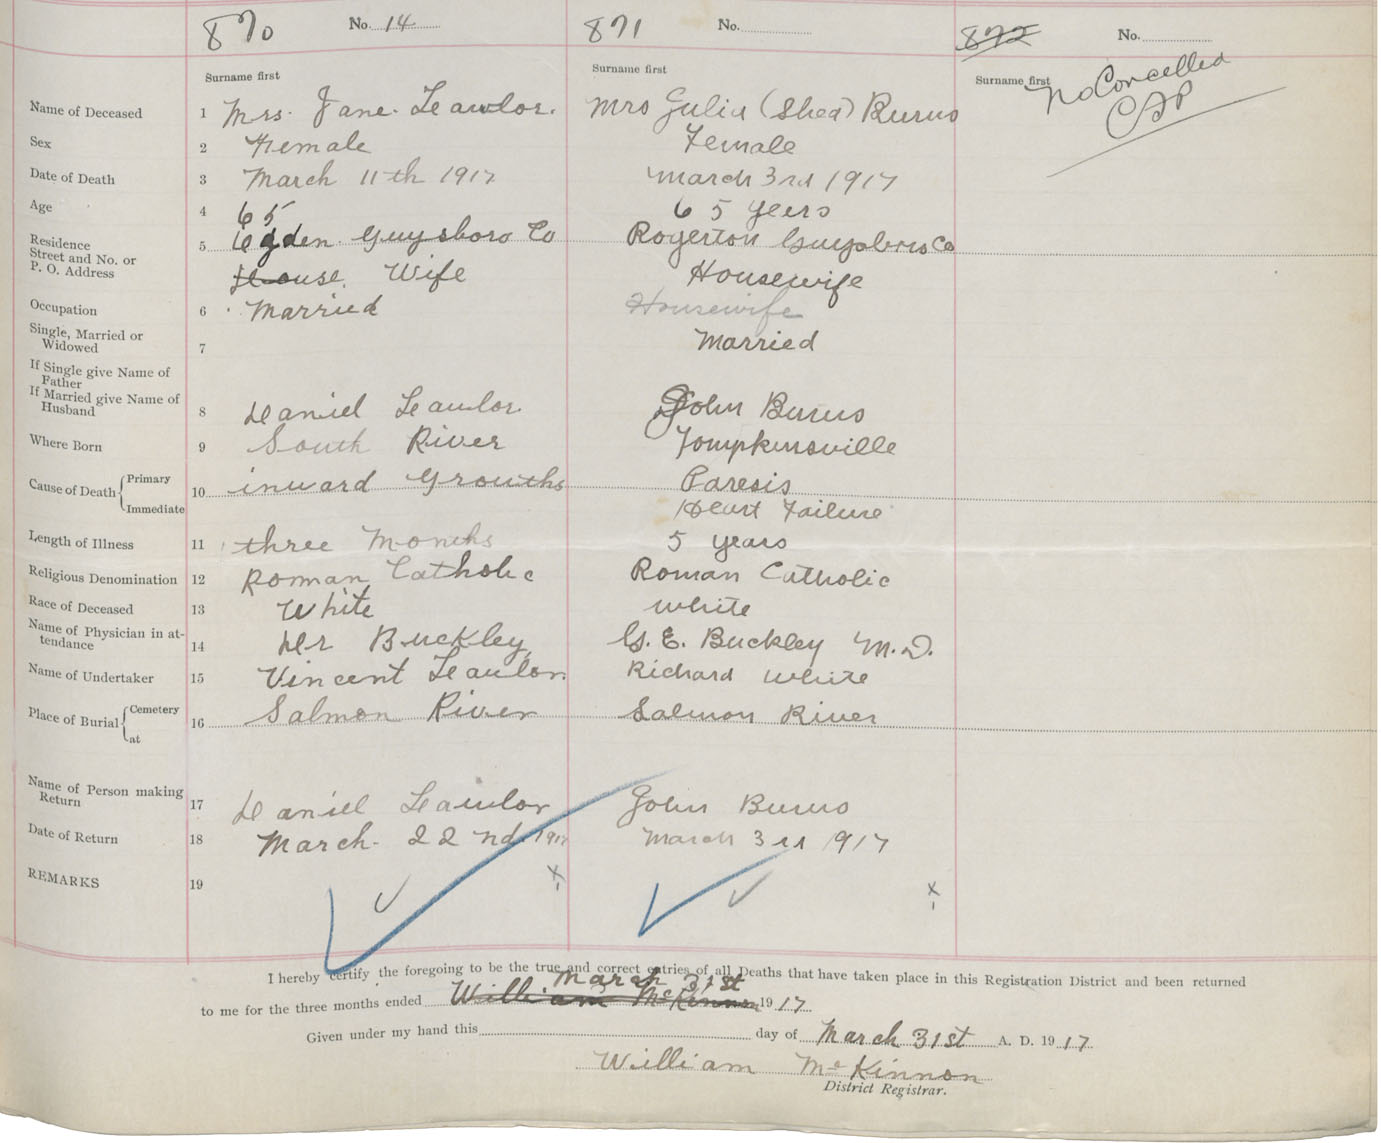 870 No. 14 871 No. 872 No.
Surname first Surname first Surname first No Cancelled
Name of Deceased 1 Mrs. Jane Lawlor. Mrs Julia (Shea) Burns
Sex 2 Female Female
Date of Death 3 March 11th 1917 March 3rd 1917
Age 4 65 65 years
Residence
Street and No. or
P. O. Address 5 Ogden Guysboro Co Rogerton Guysboro Co
House Wife Housewife
Occupation 6 Married Housewife
Single, Married or
Widowed 7 Married
If Single give Name of
Father
If Married give Name of
Husband 8 Daniel Lawlor John Burns
Where Born 9 South River Tompkinsville
Cause of Death Primary 10 inward Growths Paresis
Immediate Heart Failure
Length of Illness 11 three Months 5 years
Religious Denomination 12 Roman Catholic Roman Catholic
Race of Deceased 13 White White
Name of Physician in at-
tendance 14 Dr Buckley G. E. Buckley M.D.
Name of Undertaker 15 Vincent Lawlor Richard White
Place of Burial Cemetery 16 Salmon River Salmon River
at
Name of Person making
Return 17 Daniel Lawlor John Burns
Date of Return 18 March 22nd 1917 March 3rd 1917
REMARKS 19
I hereby certify the foregoing to be the true and correct entries of all Deaths that have taken place in this Registration District and been returned
March 31st
to me for the three months ended William McKinnon 1917
Given under my hand this day of March 31st A. D. 1917
William McKinnon
District Registrar.